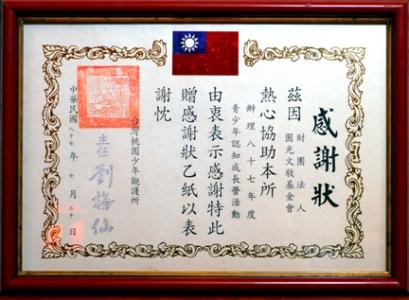 感謝狀
茲因
財團法人
圓光文教基金會
熱心協助本所
辦理八十七年度
青少年認知成長營活動
由衷表示感謝特此
贈感謝狀乙紙以表
謝忱
台灣桃園少年觀護所
主任 劉梅仙
中華民國八十七年七月三十日